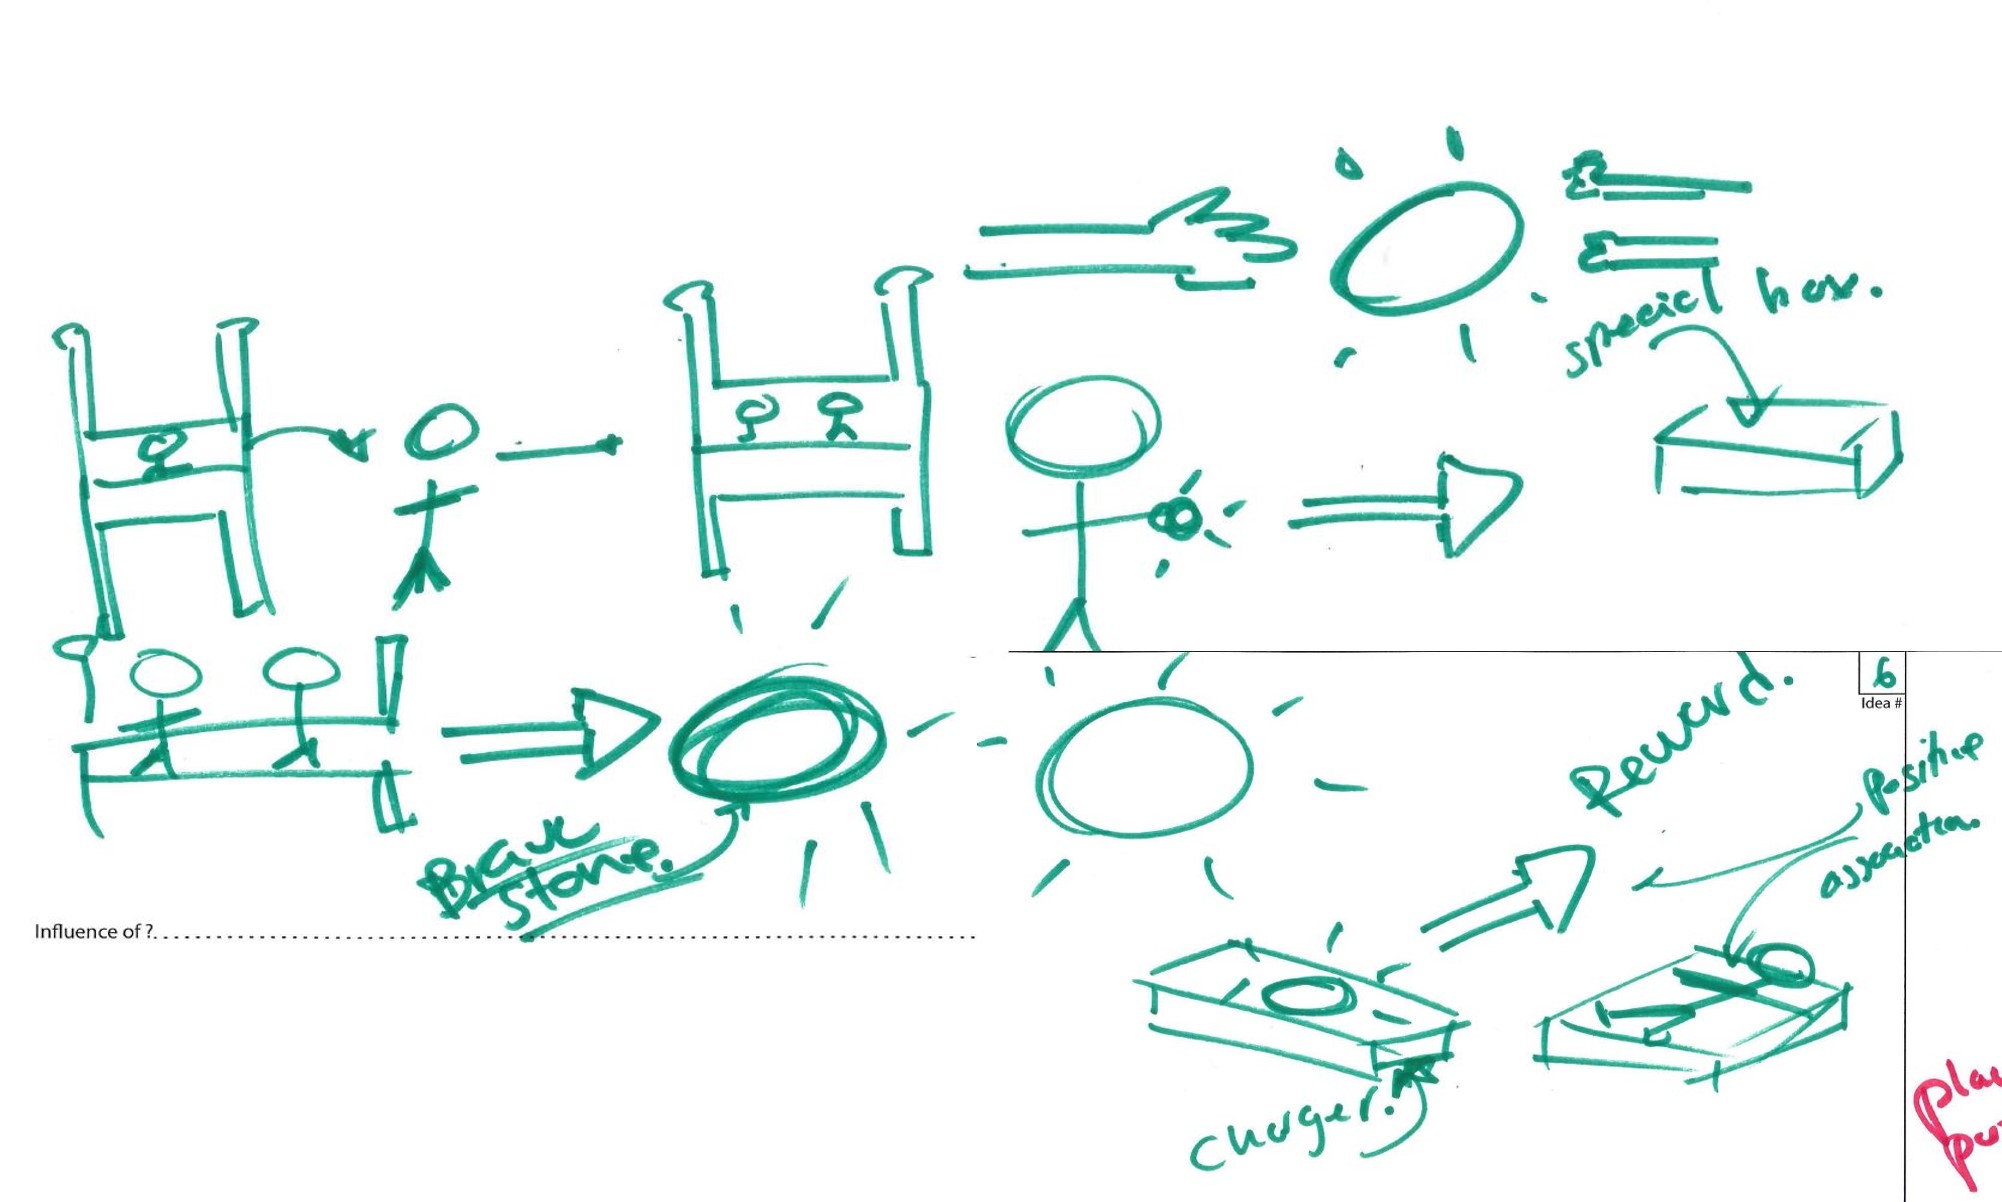 special box.
Brave
Stone.
Influence of ?
6
Idea #
Reward.
Positive
association.
charger.